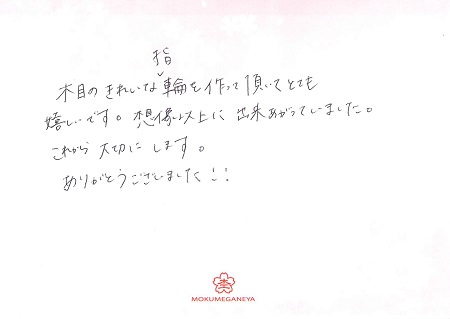 木目のきれいな指輪を作って頂いてとても
嬉しいです。想像以上に出来あがっていました。
これから大切にします。
ありがとうございました！！
杢
MOKUMEGANEYA